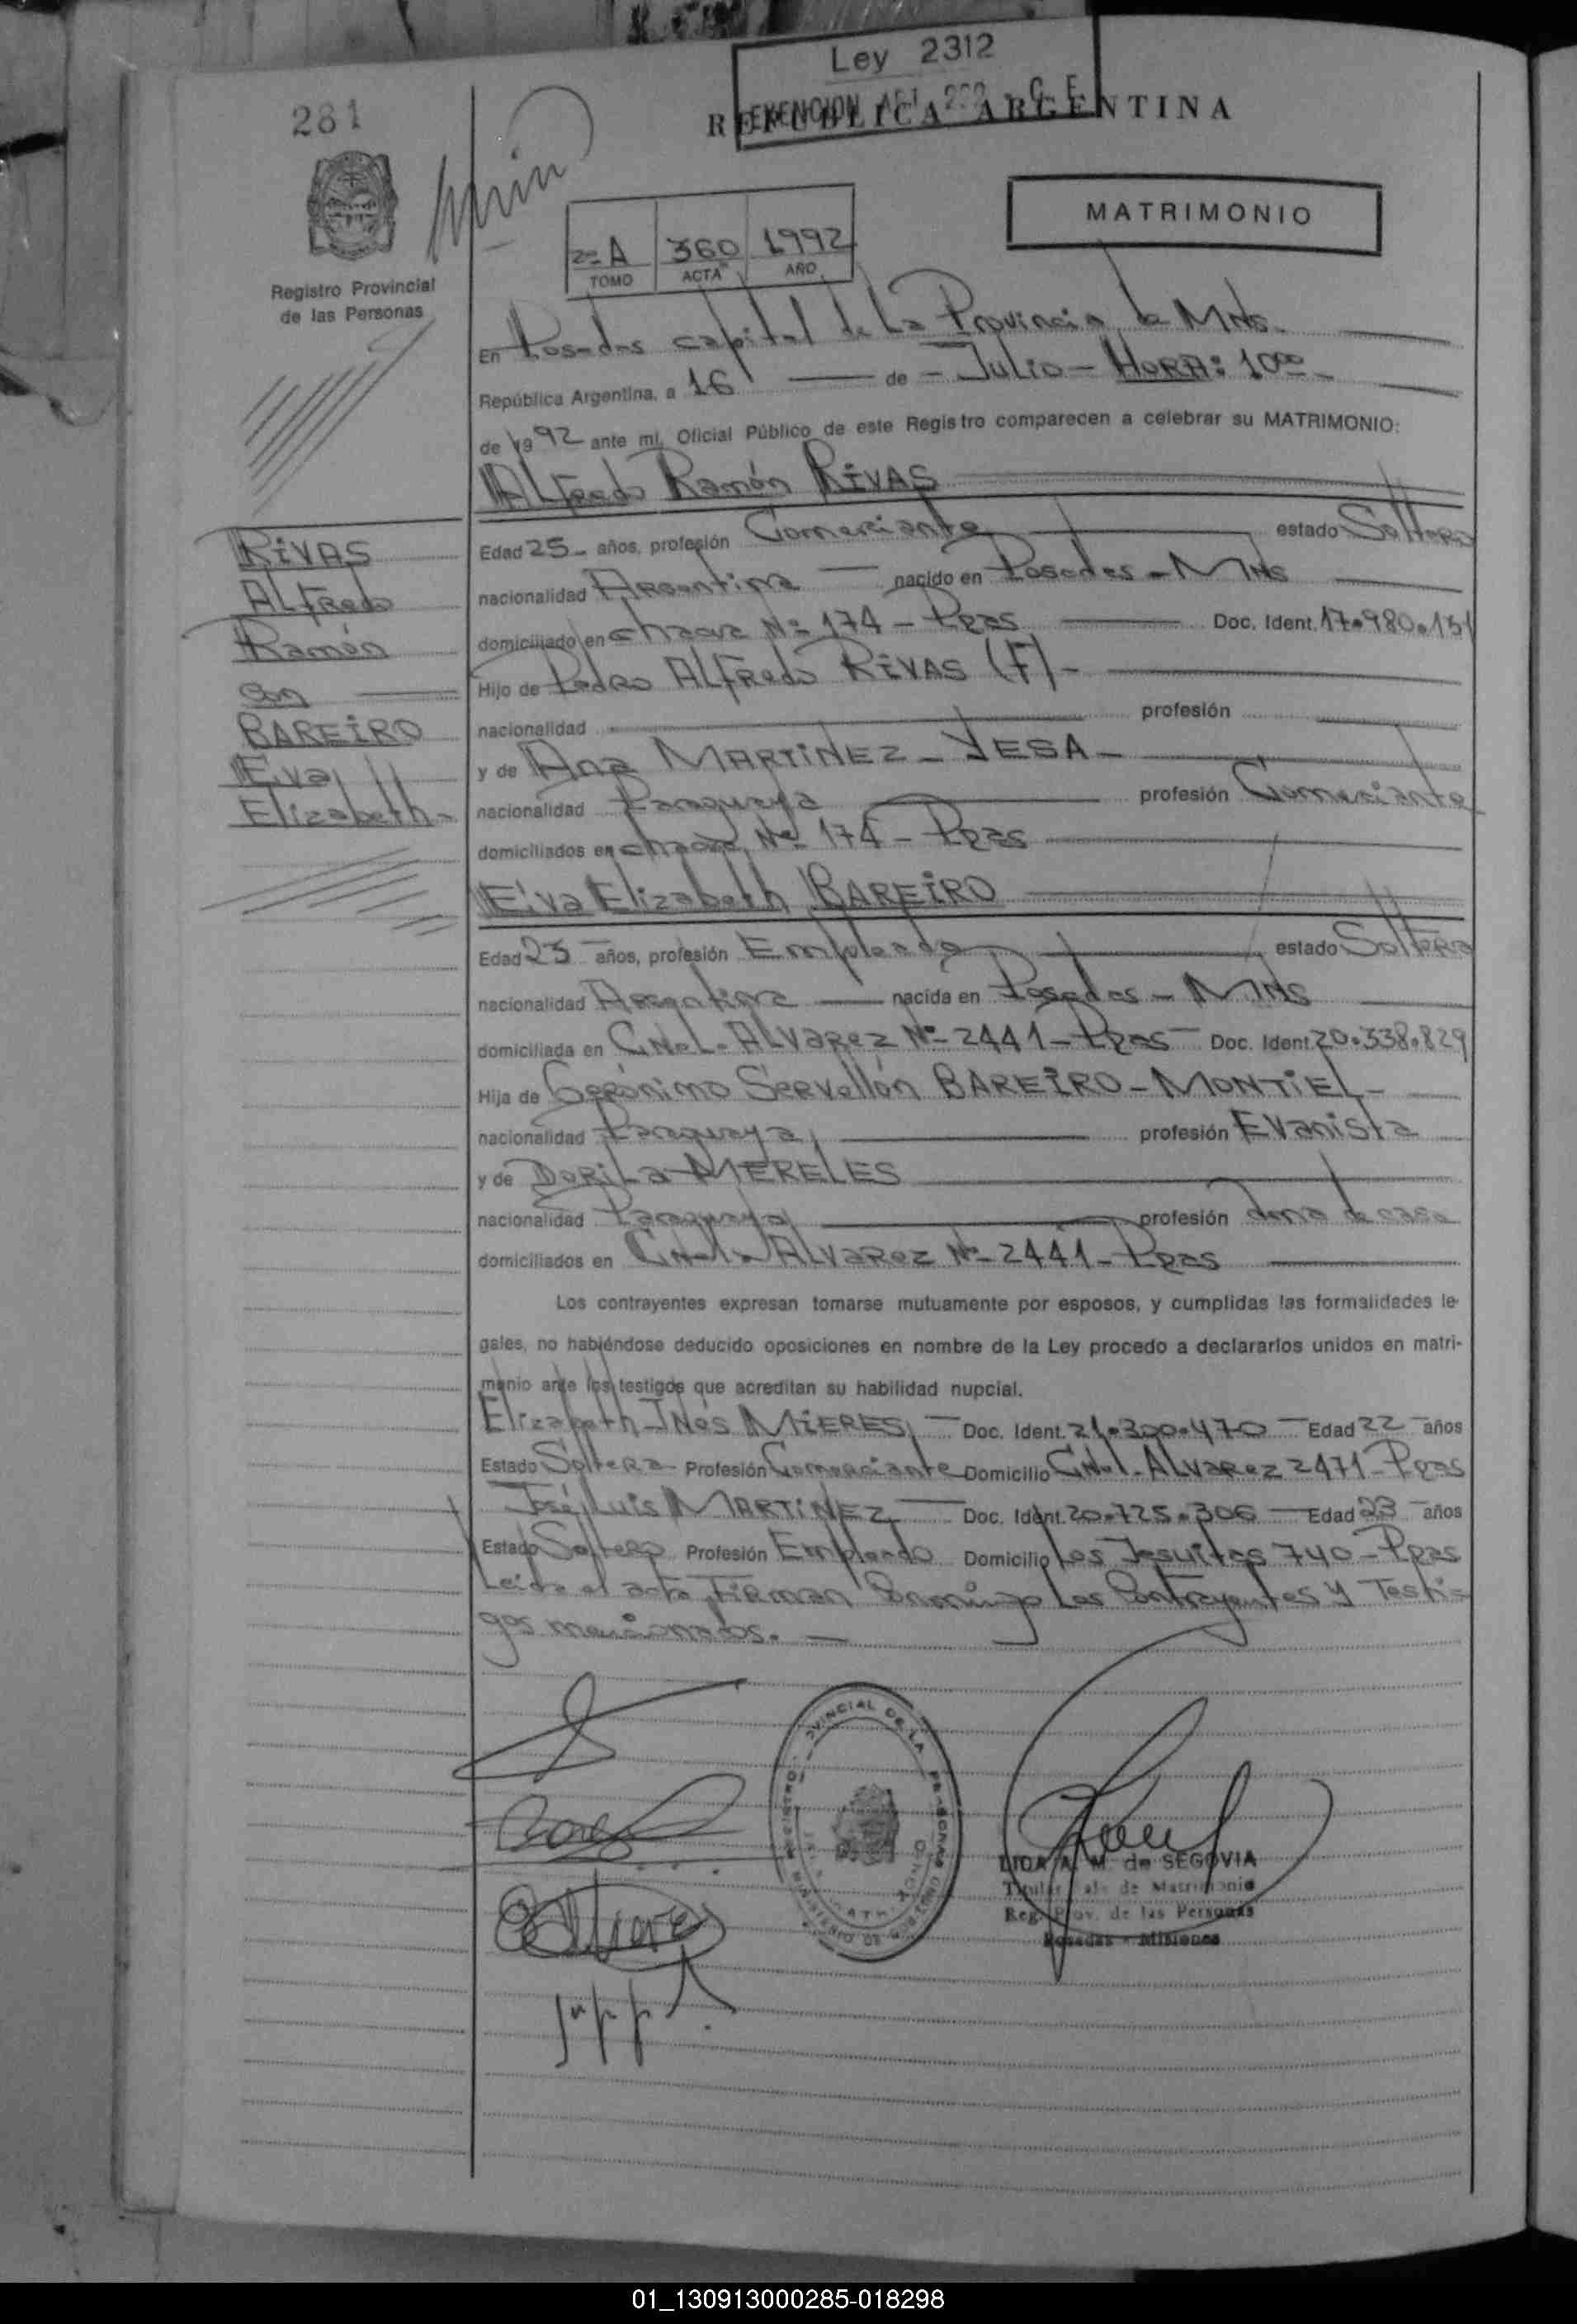 Ley 2312
EXENCION ART.
C. F.
REPUBLICA ARGENTINA
281
MATRIMONIO
2º A 360 1992
TOMO ACTA AÑO
Registro Provincial
de las Personas
En Posadas capital de La Provincia de Mnes.
República Argentina, a 16 de - Julio - HORA: 10ºº -
de 1992 ante mi, Oficial Público de este Registro comparecen a celebrar su MATRIMONIO:
Alfredo Ramón RIVAS
Edad 25 - años, profesión Comerciante estado Soltero
nacionalidad Argentina nacido en Posadas - Mnes
domiciliado en chacra Nº 174 - Ppas Doc. Ident. 17.980.131
Hijo de Pedro Alfredo RIVAS (F) -
nacionalidad profesión
y de Ana MARTINEZ - YESA -
nacionalidad Paraguaya profesión Comerciante
domiciliados en chacra Nº 174 - Ppas
Elva Elizabeth BAREIRO
Edad 23 años, profesión Empleada estado Soltera
nacionalidad Argentina nacida en Posadas - Mnes
domiciliada en CNel. Alvarez Nº 2441 - Ppas Doc. Ident. 20.338.829
Hija de Gerónimo Servellón BAREIRO - MONTIEL -
nacionalidad Paraguaya profesión Evanista
y de Dorila MERELES
nacionalidad Paraguaya profesión dona de casa
domiciliados en CNel. Alvarez Nº 2441 - Ppas
Los contrayentes expresan tomarse mutuamente por esposos, y cumplidas las formalidades le-
gales, no habiéndose deducido oposiciones en nombre de la Ley procedo a declararlos unidos en matri-
monio ante los testigos que acreditan su habilidad nupcial.
Elizabeth Inés MIERES Doc. Ident. 21.300.470 Edad 22 años
Estado Soltera Profesión Comerciante Domicilio CNel. Alvarez 2471 - Ppas
José Luis MARTINEZ Doc. Ident. 20.725.306 Edad 23 años
Estado Soltero Profesión Empleado Domicilio Los Jesuitas 740 - Ppas
Leida el acta, Firman Conmigo Los Contrayentes y Testi-
gos mencionados. -
RIVAS
Alfredo
Ramón
con
BAREIRO
Elva
Elizabeth -
LIDA A. M. de SEGOVIA
Titular de Matrimonio
Reg. Prov. de las Personas
Posadas - Misiones
01_130913000285-018298